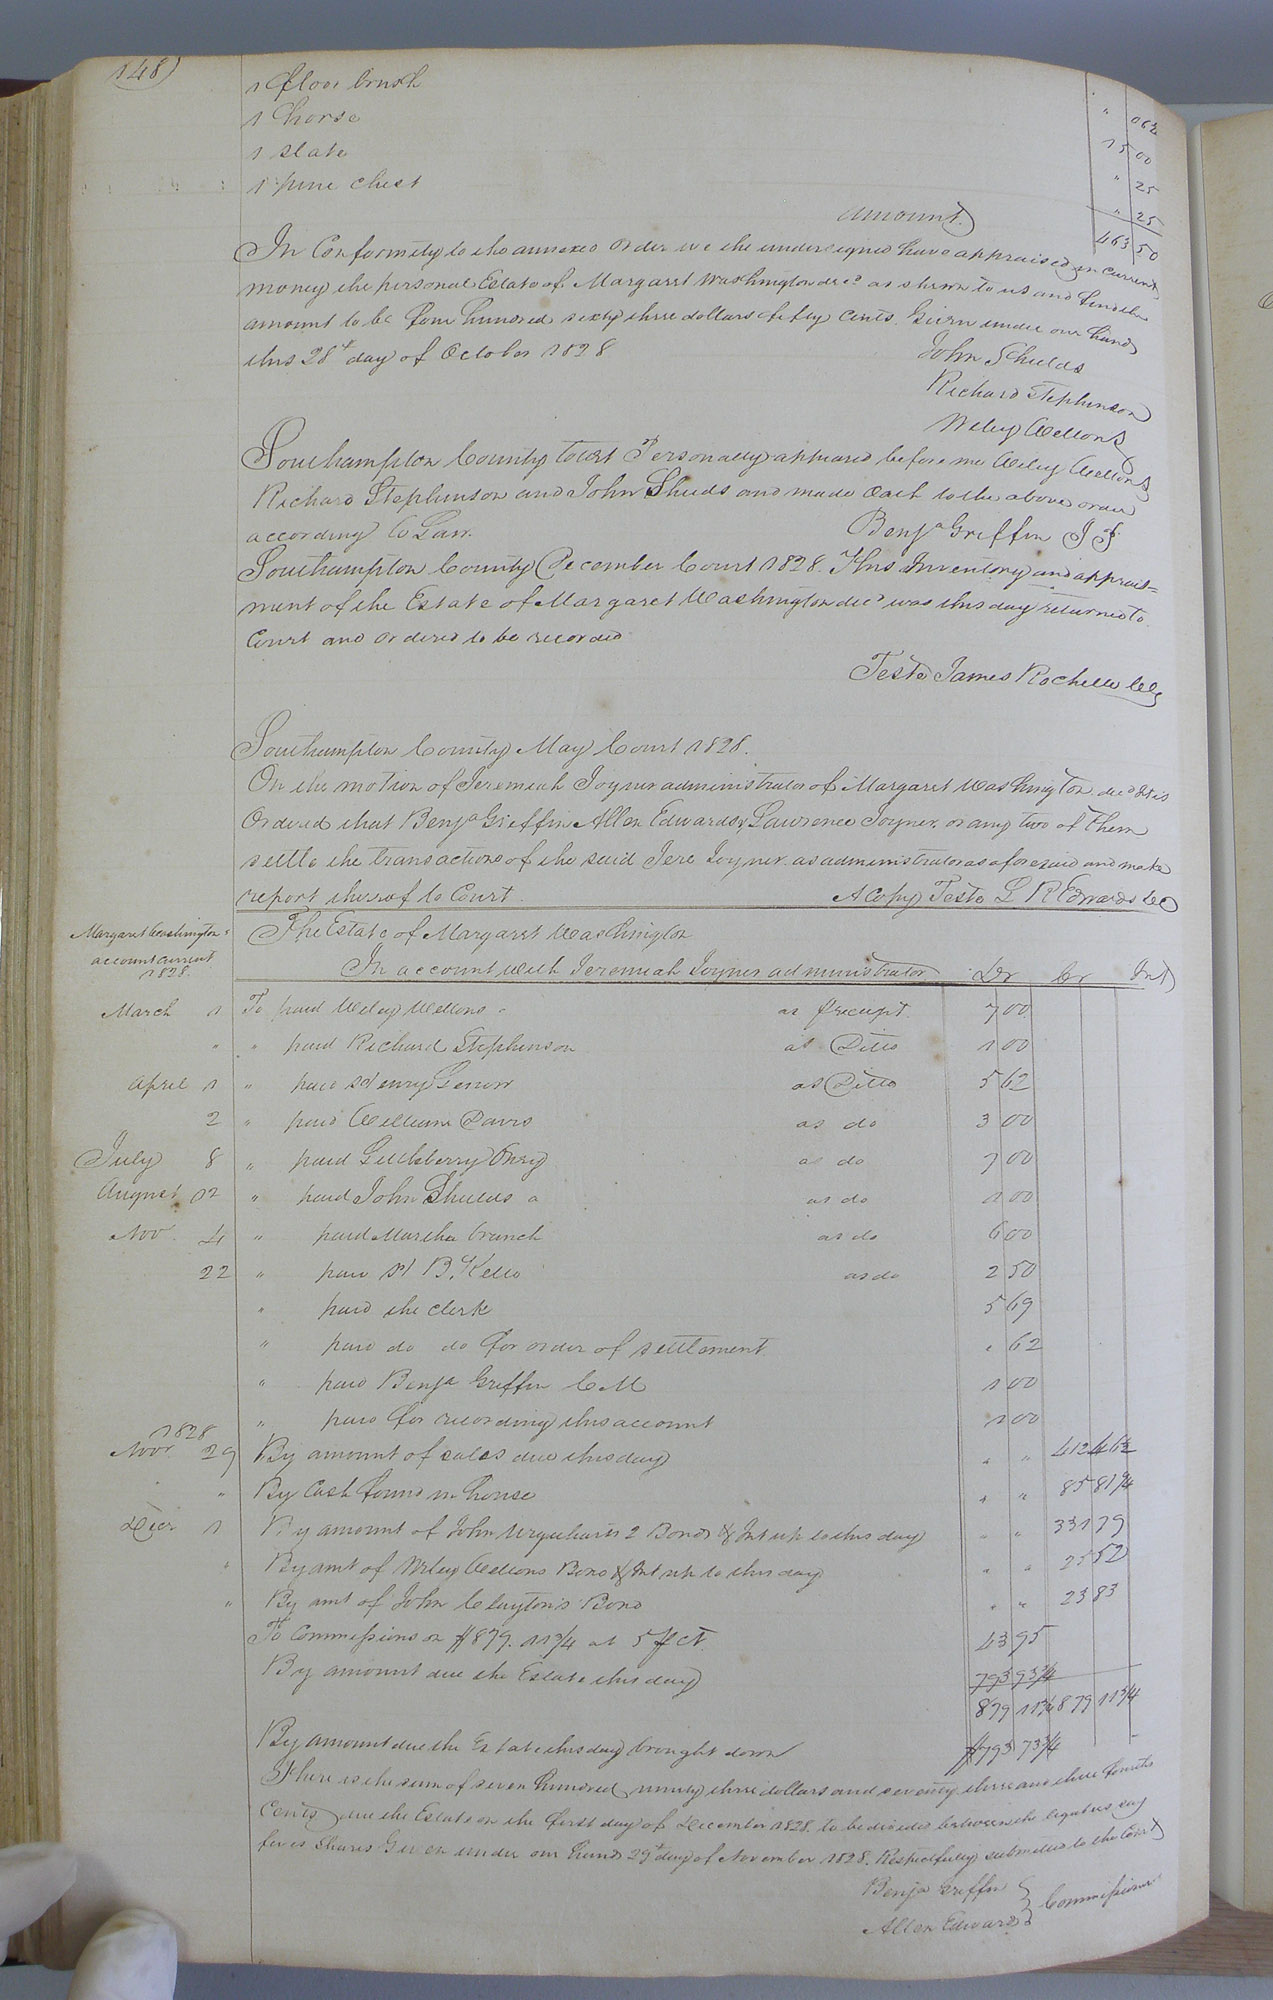 148)
1 floor brush " 06¼
1 horse 15 00
1 slate " 25
1 pine chest " 25
amount) 463 50
In Conformity to the annexed order we the undersigned have appraised in current
money the personal Estate of Margaret Washington decd as shewn to us and find the
amount to be four hundred sixty three dollars fifty cents. Given under our hands
this 28t day of October 1828
John Shields
Richard Stephenson
Wiley Wellons
Southampton County Court Personally appeared before me Wiley Wellons
Richard Stephenson and John Shields and made Oath to the above order
according to Law. Benja Griffin J P
Southampton County December Court 1828. This Inventory and apprais=
ment of the Estate of Margaret Washington decd was this day returned to
Court and ordered to be recorded
Teste James Rochelle Clk
Southampton County May Court 1828.
On the motion of Jeremiah Joyner administrator of Margaret Washington decd It is
Ordered that Benja Griffin Allen Edwards & Lawrence Joyner, or any two of them
settle the transactions of the said Jere Joyner as administrator as aforesaid and make
report thereof to Court. A Copy Teste L R Edwards DC
Margaret Washington's
account current
1828
The Estate of Margaret Washington
In account with Jeremiah Joyner administrator Dr Cr Int)
March 1 To paid Wiley Wellons as pr receipt 7 00
" " paid Richard Stephenson as Ditto 1 00
April 1 " paid Henry as Ditto 5 62
2 " paid William Davis as do 3 00
July 8 " paid as do 7 00
August 12 " paid John Shields as do 1 00
Nov. 4 " paid Martha branch as do 6 00
22 " paid S B. Kello as do 2 50
" paid the clerk 5 69
" paid do do for order of settlement " 62
" paid Benja Griffin C M 1 00
" paid for recording this account 1 00
1828
Novr 29 By amount of sales due this day " " 412 46½
" By Cash found in house " " 85 81¼
Decr 1 By amount of John Urquharts 2 Bonds & Int up to this day " " 331 79
" By amt of Wiley Wellons Bond & Int up to this day " " 25 52
" By amt of John Claytons Bond " " 23 83
To Commissions on $879. 11¾ at 5 pr ct. 43 95
By amount due the Estate this day 793 73¾
879 11¾ 879 11¾
By amount due the Estate this day brought down $793 73¾
There is the sum of seven hundred ninety three dollars and seventy three and three fourths
Cents due the Estate on the first day of December 1828. to be divided between the legatees say
five shares Given under our hands 29t day of November 1828. Respectfully submitted to the Court
Benja Griffin } Commissioners
Allen Edwards